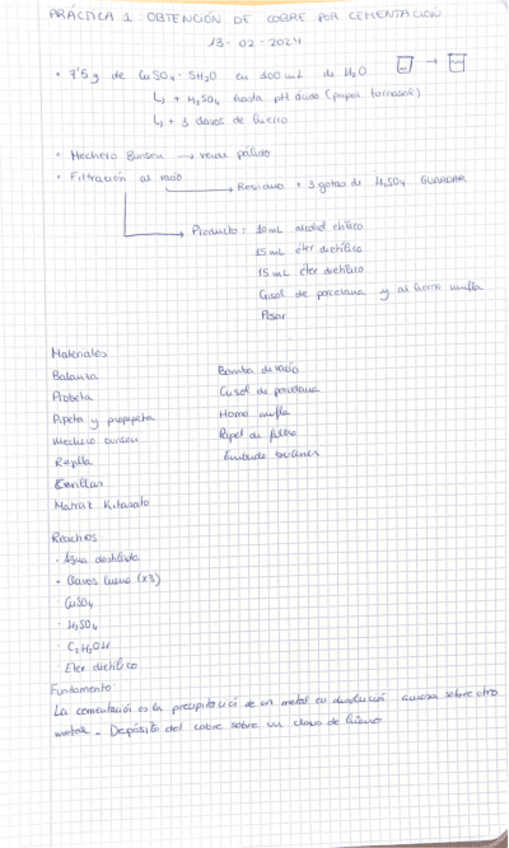 PRÁCTICA 1: OBTENCIÓN DE COBRE POR CEMENTACIÓN
13-02-2024
• 7'5g de CuSO₄·5H₂O en 100mL de H₂O →
↳ + H₂SO₄ hasta pH ácido (papel tornasol)
↳ + 3 clavos de hierro
• Mechero Bunsen → verde pálido
• Filtración al vacío
→ Residuo + 3 gotas de H₂SO₄ GUARDAR
→ Producto: 10mL alcohol etílico
15mL éter dietílico
15mL éter dietílico
Crisol de porcelana y al horno mufla
Pesar
Materiales
Balanza
Probeta
Pipeta y propipeta
Mechero bunsen
Rejilla
Cerillas
Matraz Kitasato
Bomba de vacío
Crisol de porcelana
Horno mufla
Papel de filtro
Embudo
Reactivos
• Agua destilada
• Clavos hierro (x3)
· CuSO₄
· H₂SO₄
· C₂H₅OH
· Eter dietílico
Fundamento:
La cementación es la precipitación de un metal en disolución acuosa sobre otro
metal. Depósito del cobre sobre un clavo de hierro